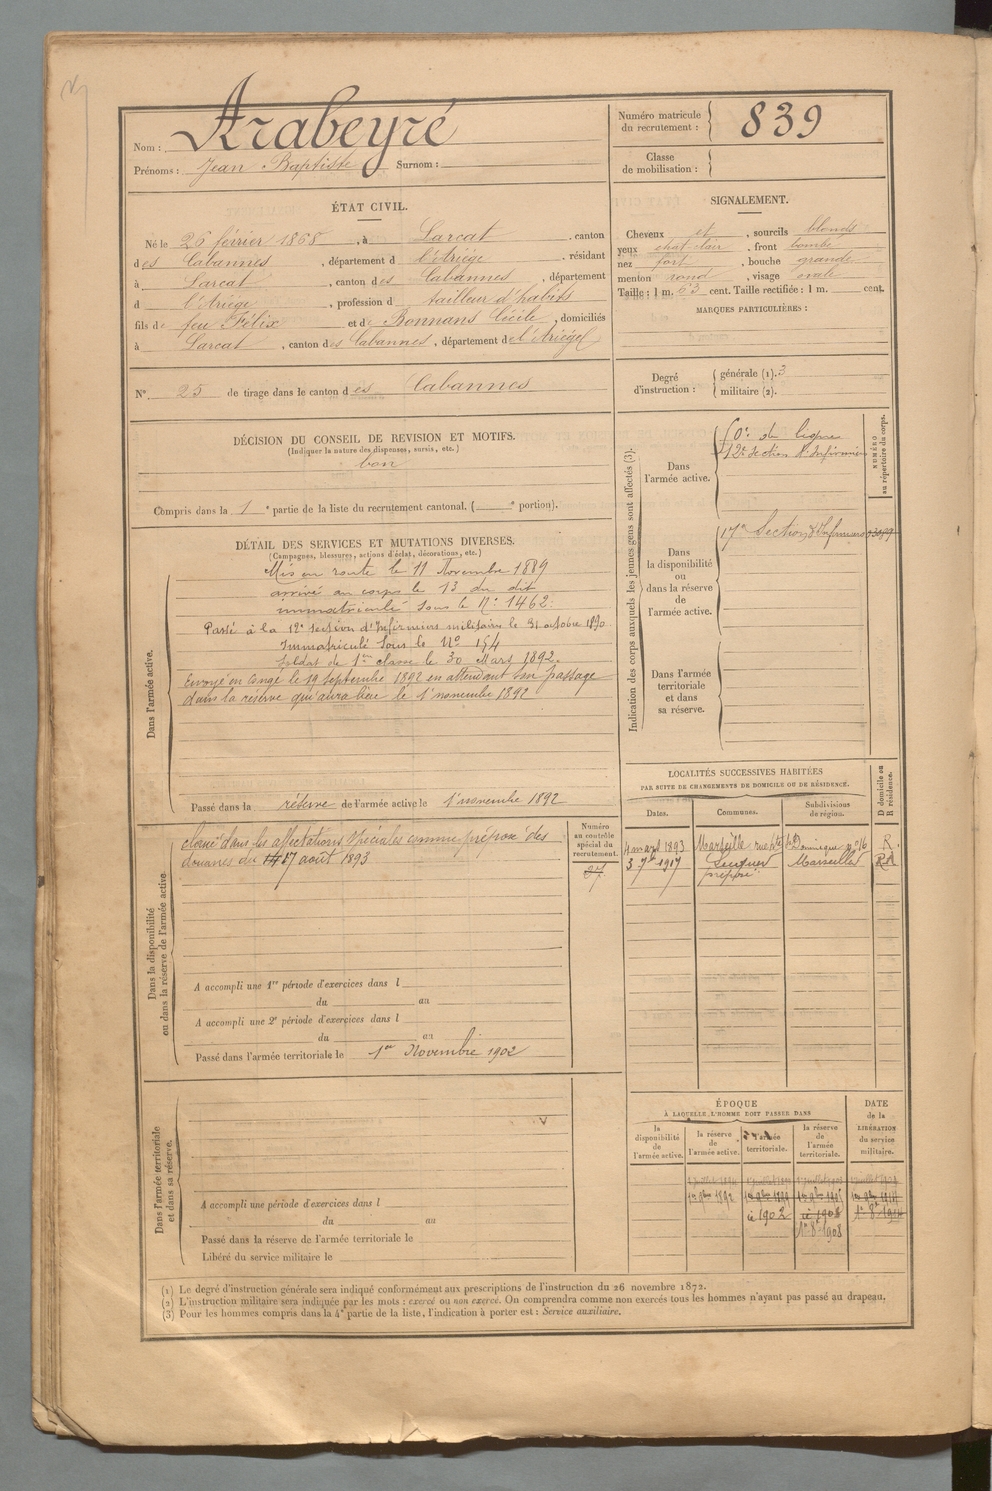 Nom : Arabeyré
Prénoms : Jean Baptiste Surnom :
Numéro matricule du recrutement : 839
Classe de mobilisation :
ÉTAT CIVIL.
Né le 26 février 1868, à Larcat, canton
des Cabannes, département d l'Ariège, résidant
à Larcat, canton des Cabannes, département
d l'Ariège, profession d tailleur d'habits
fils de feu Félix et de Bonnans Cécile, domiciliés
à Larcat, canton des Cabannes, département de l'Ariège
N° 25 de tirage dans le canton des Cabannes
SIGNALEMENT.
Cheveux et, sourcils blonds
yeux chat clair, front bombé
nez fort, bouche grande
menton rond, visage ovale
Taille : 1 m. 63 cent. Taille rectifiée : 1 m. cent.
MARQUES PARTICULIÈRES :
Degré d'instruction : générale (1). 3
militaire (2).
DÉCISION DU CONSEIL DE REVISION ET MOTIFS.
(Indiquer la nature des dispenses, sursis, etc.)
bon
Compris dans la 1e partie de la liste du recrutement cantonal. ( e portion).
DÉTAIL DES SERVICES ET MUTATIONS DIVERSES.
(Campagnes, blessures, actions d'éclat, décorations, etc.)
Dans l'armée active.
Mis en route le 11 Novembre 1889
arrivé au corps le 13 du dit
immatriculé sous le N° 1462.
Passé à la 12e section d'Infirmiers militaire le 31 octobre 1890
Immatriculé sous le N° 154
Soldat de 1ère classe le 30 Mars 1892.
Envoyé en congé le 19 septembre 1892 en attendant son passage
dans la réserve qui aura lieu le 1er novembre 1892
Passé dans la réserve de l'armée active le 1er novembre 1892
Indication des corps auxquels les jeunes gens sont affectés (3).
NUMÉRO au répertoire du corps.
Dans l'armée active.
de ligne
12e Section d'Infirmiers
Dans la disponibilité ou dans la réserve de l'armée active.
17e Section d'Infirmiers
Dans l'armée territoriale et dans sa réserve.
LOCALITÉS SUCCESSIVES HABITÉES
PAR SUITE DE CHANGEMENTS DE DOMICILE OU DE RÉSIDENCE.
D domicile ou R résidence.
Dates. Communes. Subdivisions de région.
4 mars 1893 Marseille rue pte St Dominique n° 16 R.
3 7bre 1917 Marseille
préposé
Dans la disponibilité ou dans la réserve de l'armée active
Numéro au contrôle spécial du recrutement.
27
classé dans les affectations spéciales comme préposé des
douanes du 17 août 1893
A accompli une 1re période d'exercices dans l
du au
A accompli une 2e période d'exercices dans l
du au
Passé dans l'armée territoriale le 1er Novembre 1902
Dans l'armée territoriale et dans sa réserve.
A accompli une période d'exercices dans l
du au
Passé dans la réserve de l'armée territoriale le
Libéré du service militaire le
ÉPOQUE
À LAQUELLE L'HOMME DOIT PASSER DANS
DATE de la LIBÉRATION du service militaire.
la disponibilité de l'armée active.
la réserve de l'armée active.
l'armée territoriale.
la réserve de l'armée territoriale.
1er 9bre 1892 1er 9bre 1899 1er 9bre 1905 1er 9bre 1914
1902 1908
1908
(1) Le degré d'instruction générale sera indiqué conformément aux prescriptions de l'instruction du 26 novembre 1872.
(2) L'instruction militaire sera indiquée par les mots : exercé ou non exercé. On comprendra comme non exercés tous les hommes n'ayant pas passé au drapeau.
(3) Pour les hommes compris dans la 4e partie de la liste, l'indication à porter est : Service auxiliaire.